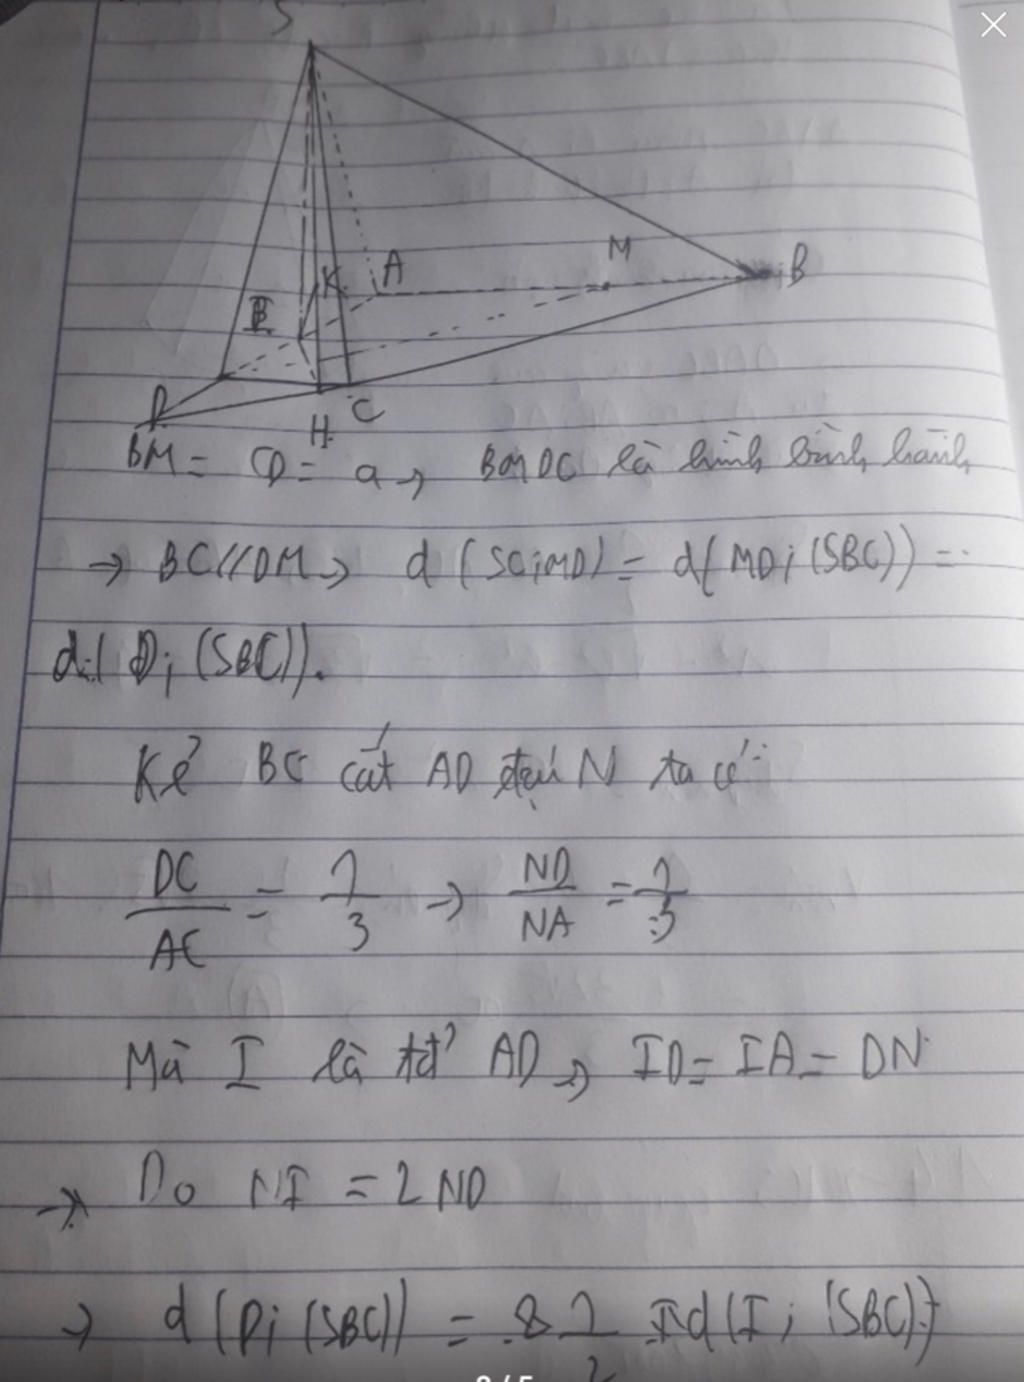 S
K
A
M
B
I
D
C
H
BM = CD = a → BMDC là hình bình hành
→ BC//DM → d (SC;MD) = d(MD; (SBC)) =
d( D; (SBC)).
Kẻ BC cắt AD tại N ta có:
DC/AC = 1/3 → ND/NA = 1/3
Mà I là tđ AD → ID = IA = DN
→ Do NI = 2 ND
→ d (D; (SBC)) = 1/2 d(I; (SBC))